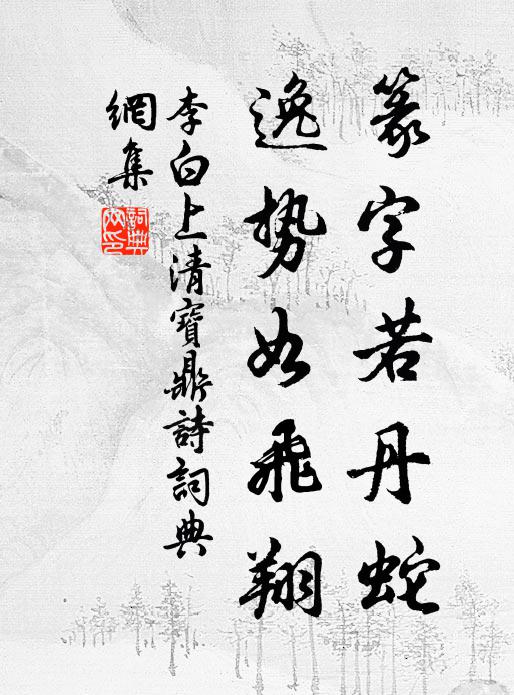 篆字若丹蛇
逸势如飛翔
李白上清寶鼎詩詞典
網集
詞典
网印